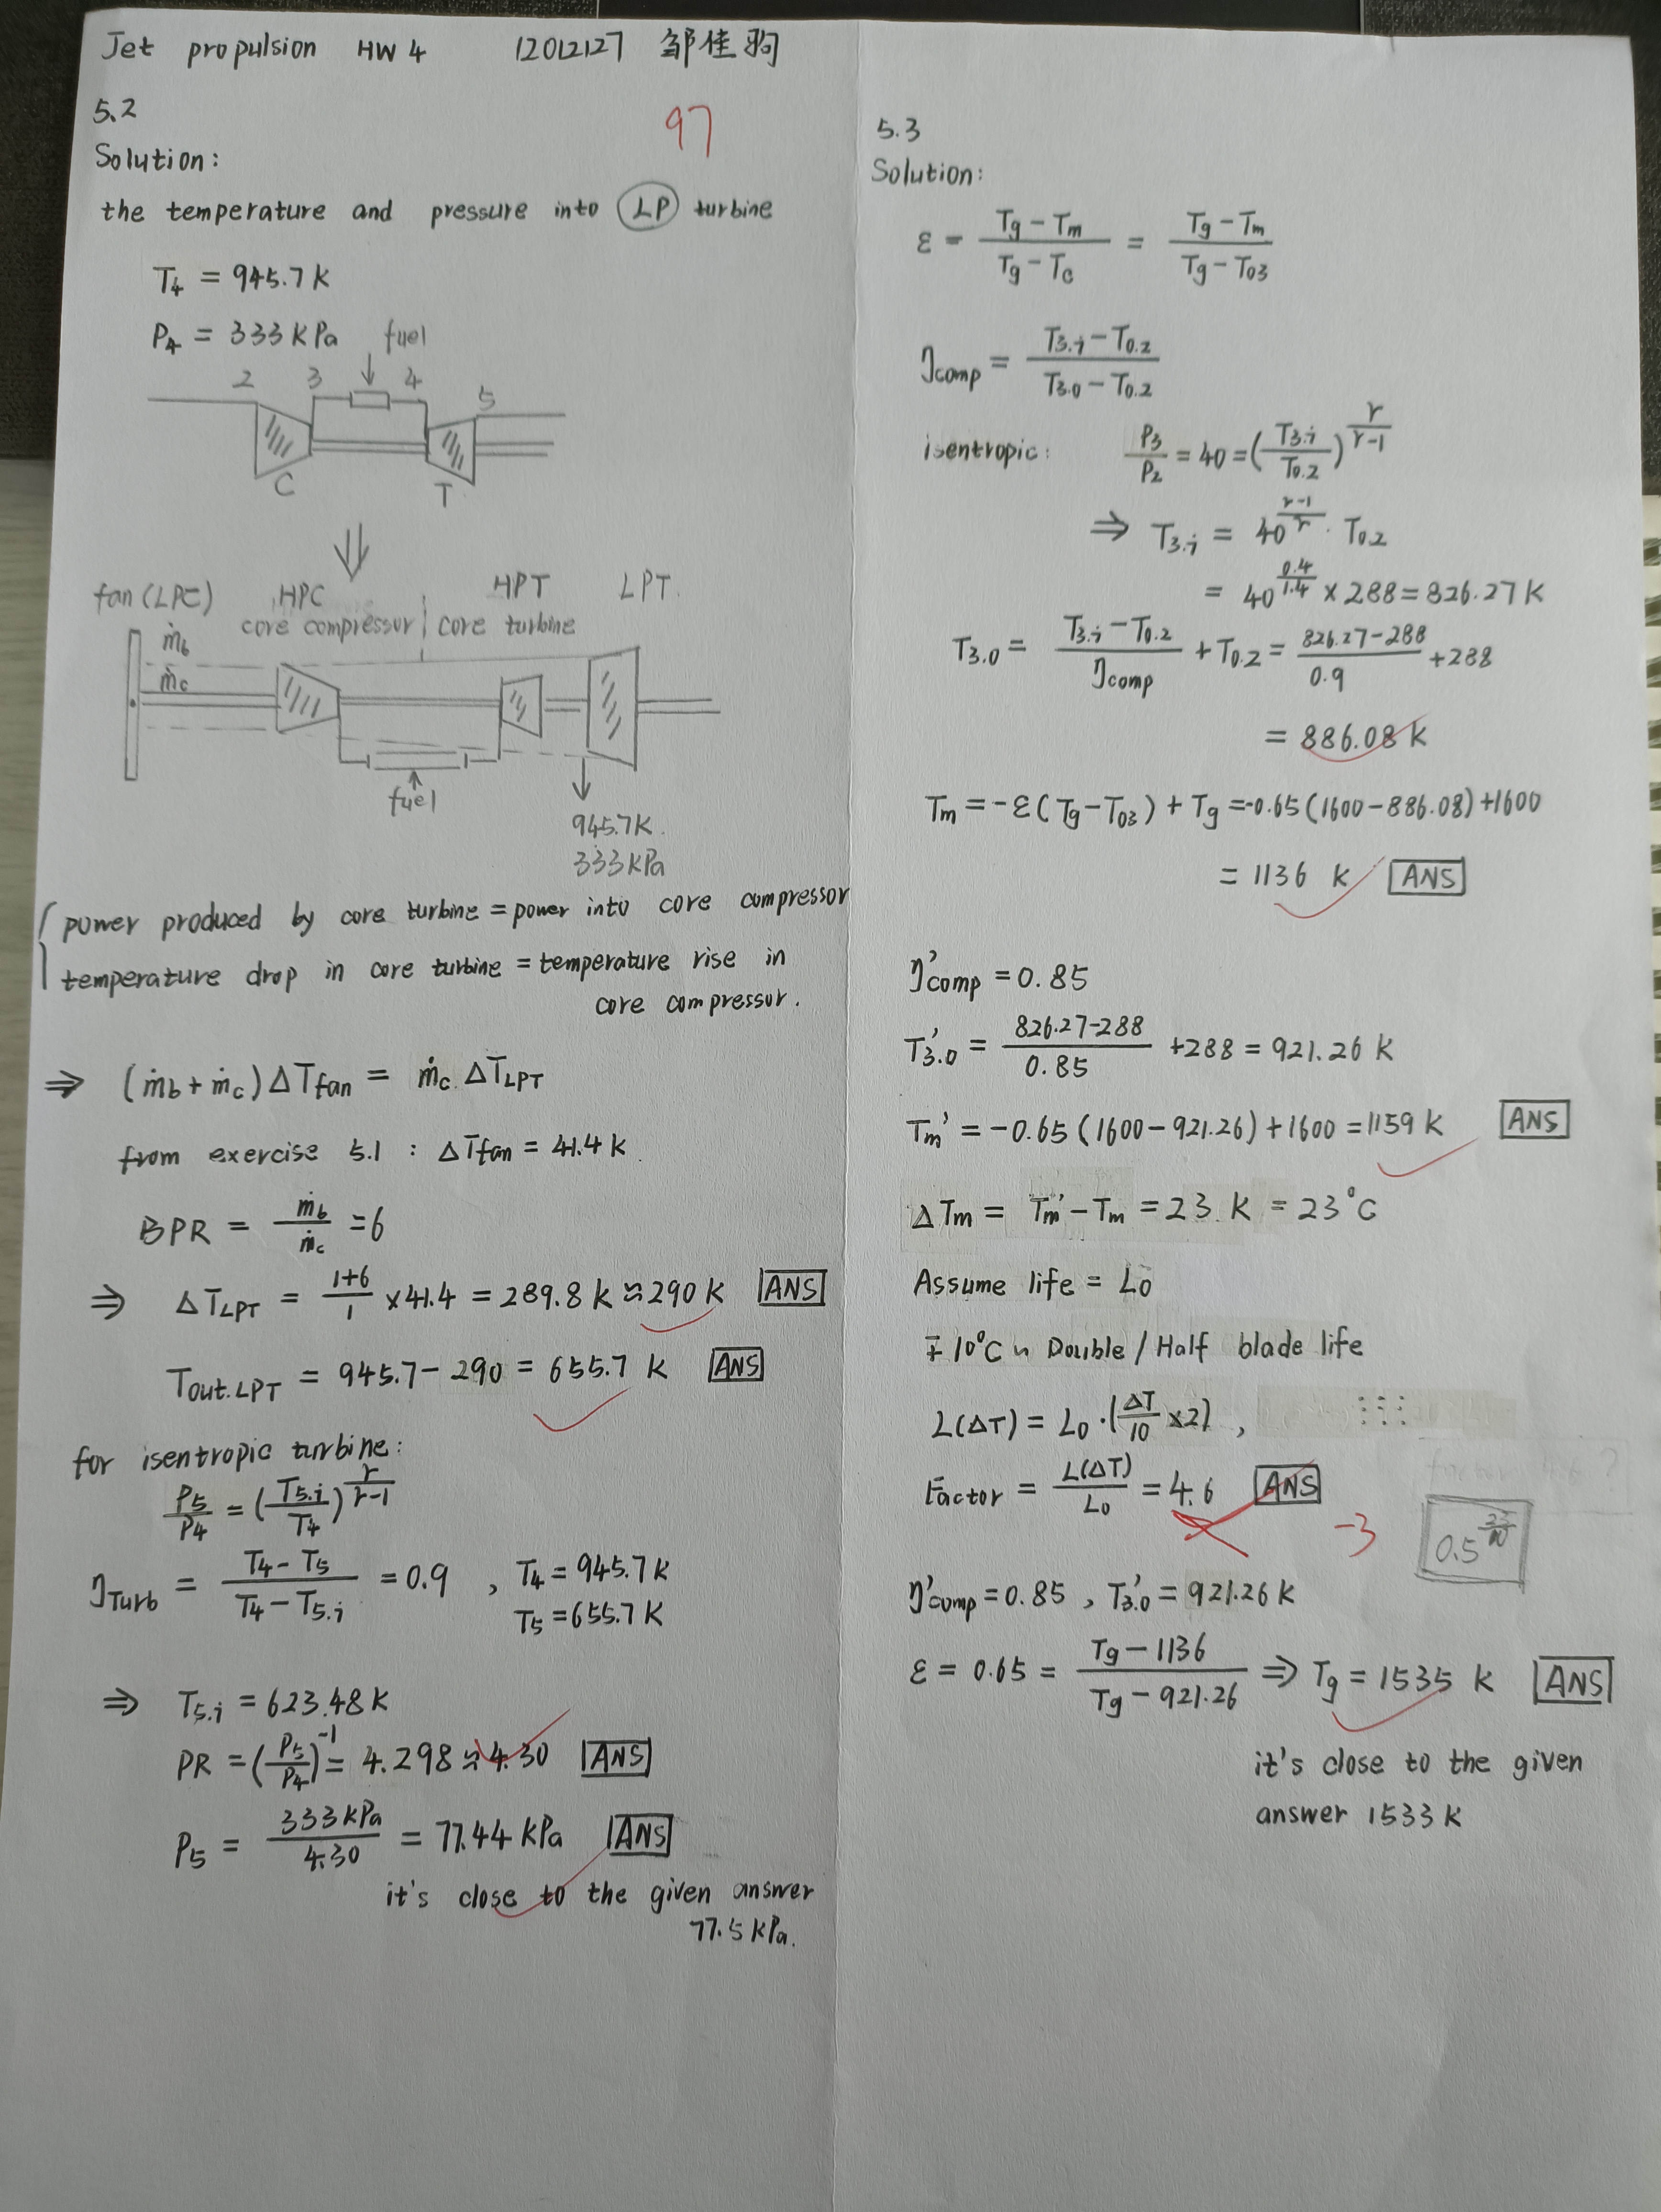 Jet propulsion HW 4 12012127 邹佳驹
97
5.2
Solution:
the temperature and pressure into LP turbine
T4 = 945.7 K
P4 = 333 KPa fuel
2 3 4 5
C T
fan (LPC) HPC HPT LPT
core compressor core turbine
ṁb
ṁc
fuel
945.7K
333 KPa
power produced by core turbine = power into core compressor
temperature drop in core turbine = temperature rise in
core compressor.
⇒ (ṁb + ṁc) ΔTfan = ṁc ΔTLPT
from exercise 5.1 : ΔTfan = 41.4 K
BPR = ṁb/ṁc = 6
⇒ ΔTLPT = (1+6)/1 × 41.4 = 289.8 K ≈ 290 K ANS
Tout.LPT = 945.7 - 290 = 655.7 K ANS
for isentropic turbine:
P5/P4 = (T5.i/T4)^(r/(r-1))
ηTurb = (T4 - T5)/(T4 - T5.i) = 0.9 , T4 = 945.7 K
T5 = 655.7 K
⇒ T5.i = 623.48 K
PR = (P5/P4)^-1 = 4.298 ≈ 4.30 ANS
P5 = 333 KPa/4.30 = 77.44 KPa ANS
it's close to the given answer
77.5 KPa.
5.3
Solution:
ε = (Tg - Tm)/(Tg - Tc) = (Tg - Tm)/(Tg - T03)
ηcomp = (T3.i - T0.2)/(T3.0 - T0.2)
isentropic: P3/P2 = 40 = (T3.i/T0.2)^(r/(r-1))
⇒ T3.i = 40^((r-1)/r) · T0.2
= 40^(0.4/1.4) × 288 = 826.27 K
T3.0 = (T3.i - T0.2)/ηcomp + T0.2 = (826.27 - 288)/0.9 + 288
= 886.08 K
Tm = -ε(Tg - T03) + Tg = -0.65 (1600 - 886.08) + 1600
= 1136 K ANS
η'comp = 0.85
T3.0' = (826.27-288)/0.85 + 288 = 921.26 K
Tm' = -0.65 (1600 - 921.26) + 1600 = 1159 K ANS
ΔTm = Tm' - Tm = 23 K = 23°C
Assume life = L0
∓10°C ~ Double / Half blade life
L(ΔT) = L0 · (ΔT/10 × 2) ,
Factor = L(ΔT)/L0 = 4.6 ANS
-3
0.5^(23/10)
η'comp = 0.85 , T3.0' = 921.26 K
ε = 0.65 = (Tg - 1136)/(Tg - 921.26) ⇒ Tg = 1535 K ANS
it's close to the given
answer 1533 K